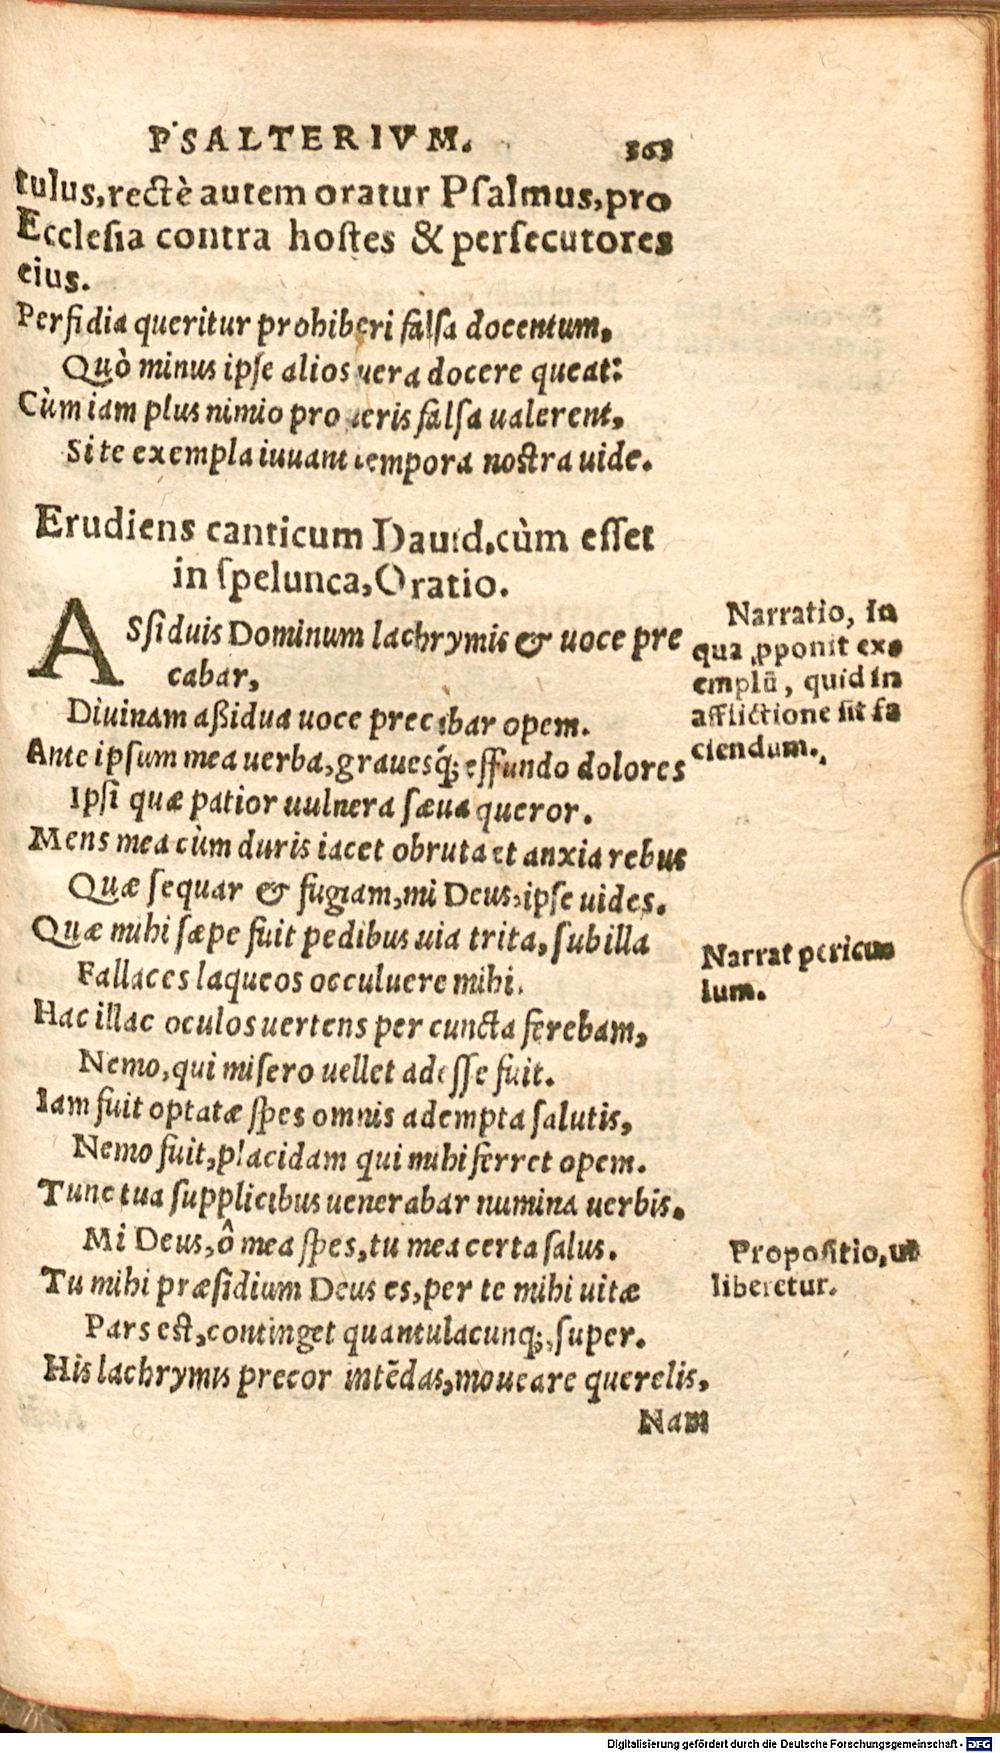 PSALTERIVM. 363
tulus, rectè autem oratur Psalmus, pro
Ecclesia contra hostes & persecutores
eius.
Perfidia queritur prohiberi falsa docentum,
Quò minus ipse alios uera docere queat:
Cùm iam plus nimio pro ueris falsa ualerent,
Si te exempla iuuant tempora nostra uide.
Erudiens canticum Dauid, cùm esset
in spelunca, Oratio.
ASsiduis Dominum lachrymis & uoce pre
cabar,
Diuinam aßidua uoce precabar opem.
Ante ipsum mea uerba, grauesq́; effundo dolores
Ipsi quæ patior uulnera sæua queror.
Mens mea cùm duris iacet obruta et anxia rebus
Quæ sequar & fugiam, mi Deus, ipse uides.
Quæ mihi sæpe fuit pedibus uia trita, sub illa
Fallaces laqueos occuluere mihi.
Hac illac oculos uertens per cuncta ferebam,
Nemo, qui misero uellet adesse fuit.
Iam fuit optatæ spes omnis adempta salutis,
Nemo fuit, placidam qui mihi ferret opem.
Tunc tua supplicibus uenerabar numina uerbis.
Mi Deus, ô mea spes, tu mea certa salus.
Tu mihi præsidium Deus es, per te mihi uitæ
Pars est, continget quantulacunq;, super.
His lachrymis precor intēdas, moueare querelis,
Nam
Narratio, in
qua ꝓponit ex-
emplū, quid in
afflictione sit fa
ciendum.
Narrat pericu-
lum.
Propositio, ut
liberetur.
Digitalisierung gefördert durch die Deutsche Forschungsgemeinschaft - DFG